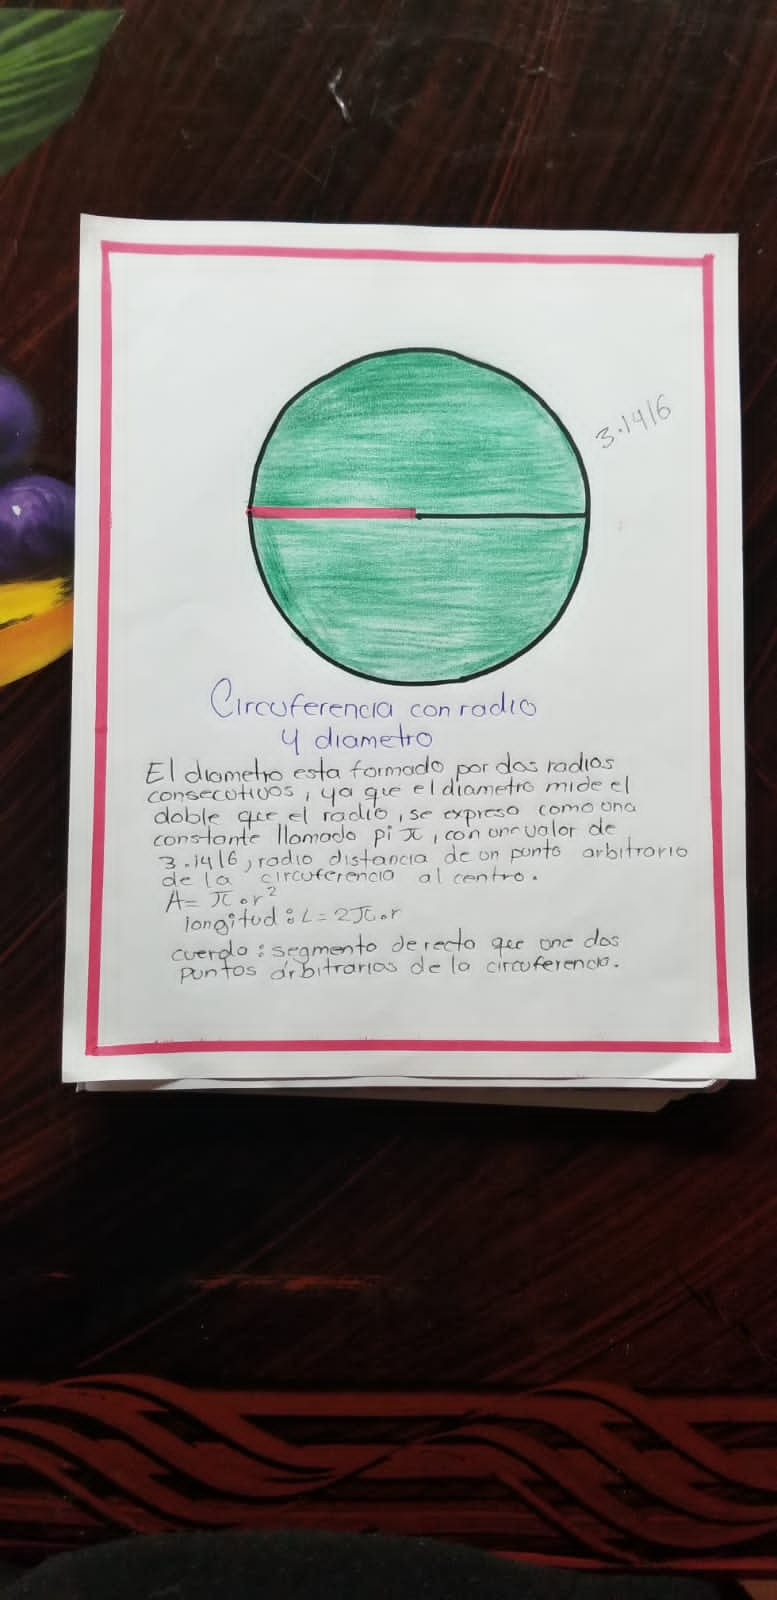 3.1416
Circuferencia con radio
y diametro
El diametro esta formado por dos radios
consecutivos, ya que el diametro mide el
doble que el radio, se expresa como una
constante llamado pi π, con un valor de
3.1416, radio distancia de un punto arbitrario
de la circuferencia al centro.
A= π.r²
longitud: L= 2π.r
cuerda: segmento de recta que une dos
puntos arbitrarios de la circuferencia.